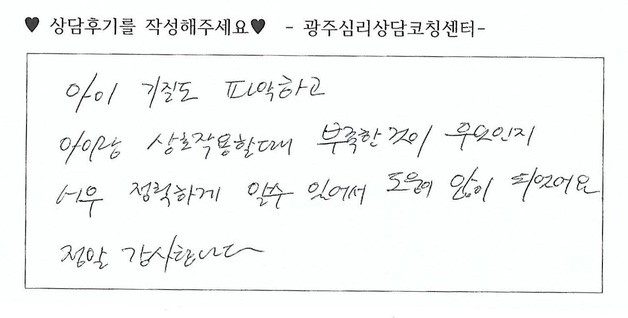 ♥ 상담후기를 작성해주세요♥ - 광주심리상담코칭센터-
아이 기질도 파악하고
아이랑 상호작용할때 부족한것이 무엇인지
너무 정확하게 알수 있어서 도움이 많이 되었어요
정말 감사합니다